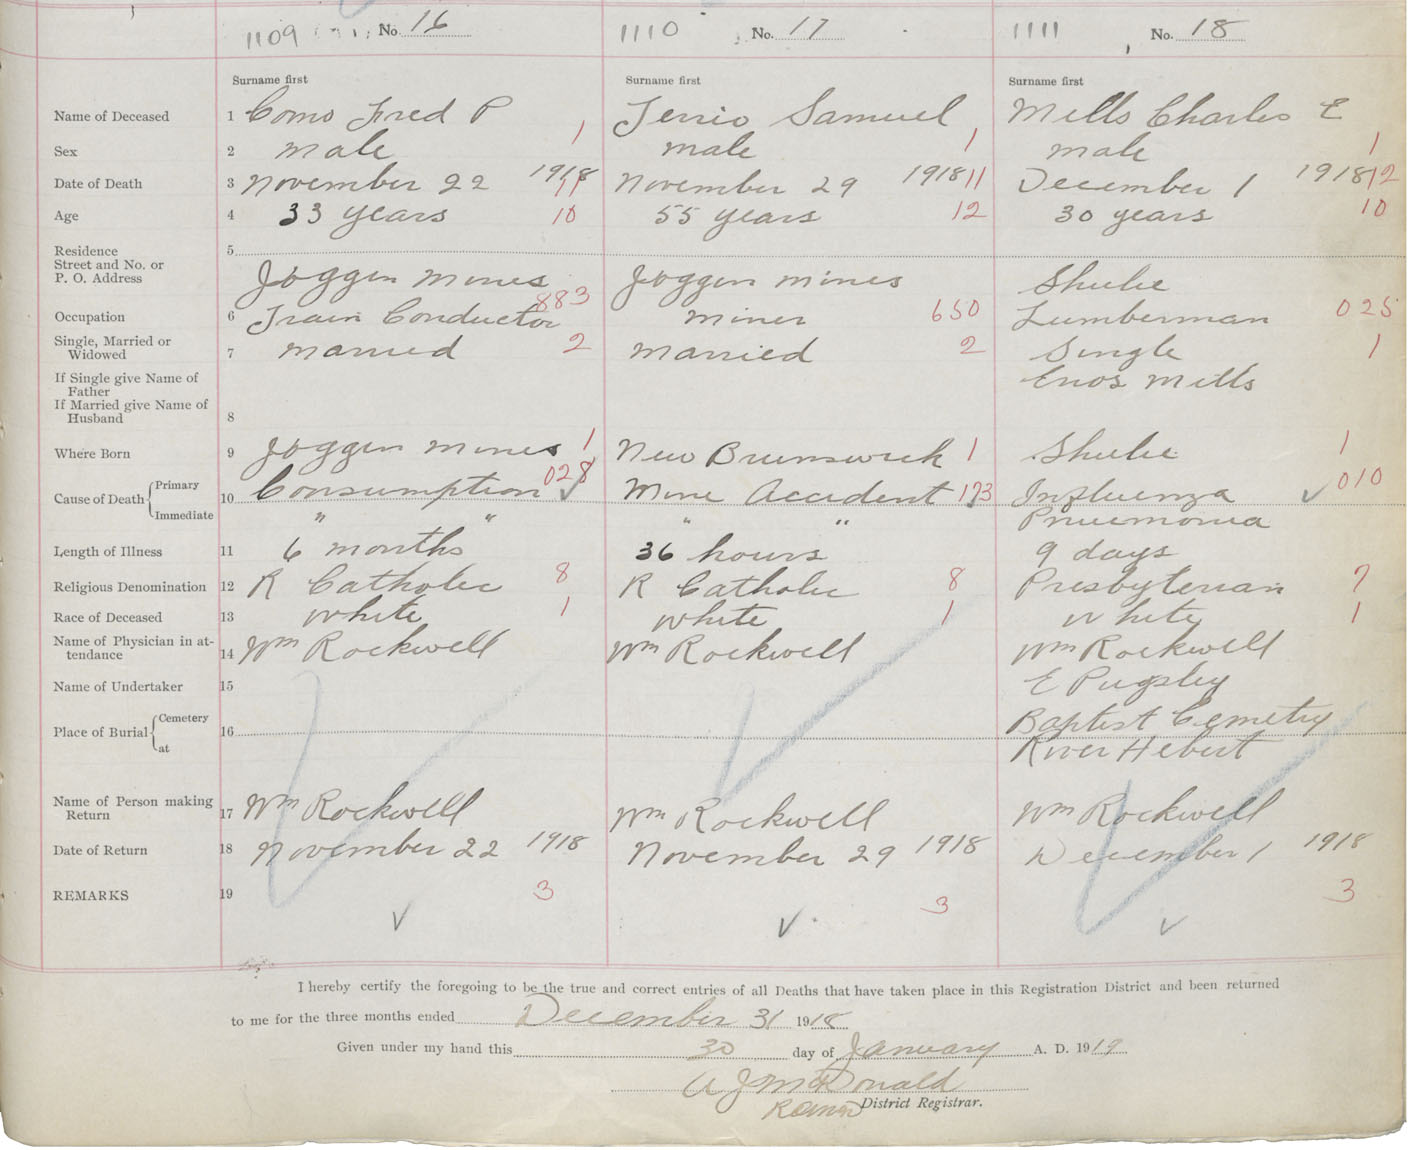 1109 No. 16 1110 No. 17 1111 No. 18
Surname first Surname first Surname first
Name of Deceased 1 Como Fred P Jerrio Samuel Mills Charles E
Sex 2 male 1 male 1 male 1
Date of Death 3 November 22 1918 11 November 29 1918 11 December 1 1918 12
Age 4 33 years 10 55 years 12 30 years 10
Residence 5
Street and No. or
P. O. Address Joggin mines Joggin mines Shulie
Occupation 6 Train Conductor 883 miner 650 Lumberman 025
Single, Married or
Widowed 7 married 2 married 2 Single 1
If Single give Name of
Father Enos Mills
If Married give Name of
Husband 8
Where Born 9 Joggin mines 1 New Brunswick 1 Shulie 1
Cause of Death Primary 10 Consumption 028 Mine Accident 173 Influenza 010
Immediate " " " " Pneumonia
Length of Illness 11 6 months 36 hours 9 days
Religious Denomination 12 R Catholic 8 R Catholic 8 Presbyterian 7
Race of Deceased 13 white 1 white 1 white 1
Name of Physician in at-
tendance 14 Wm Rockwell Wm Rockwell Wm Rockwell
Name of Undertaker 15 E Pugsley
Place of Burial Cemetery 16 Baptist Cemetry
at River Hebert
Name of Person making
Return 17 Wm Rockwell Wm Rockwell Wm Rockwell
Date of Return 18 November 22 1918 November 29 1918 December 1 1918
REMARKS 19 3 3 3
I hereby certify the foregoing to be the true and correct entries of all Deaths that have taken place in this Registration District and been returned
to me for the three months ended December 31 1918
Given under my hand this 30 day of January A. D. 1919
A J McDonald
District Registrar.